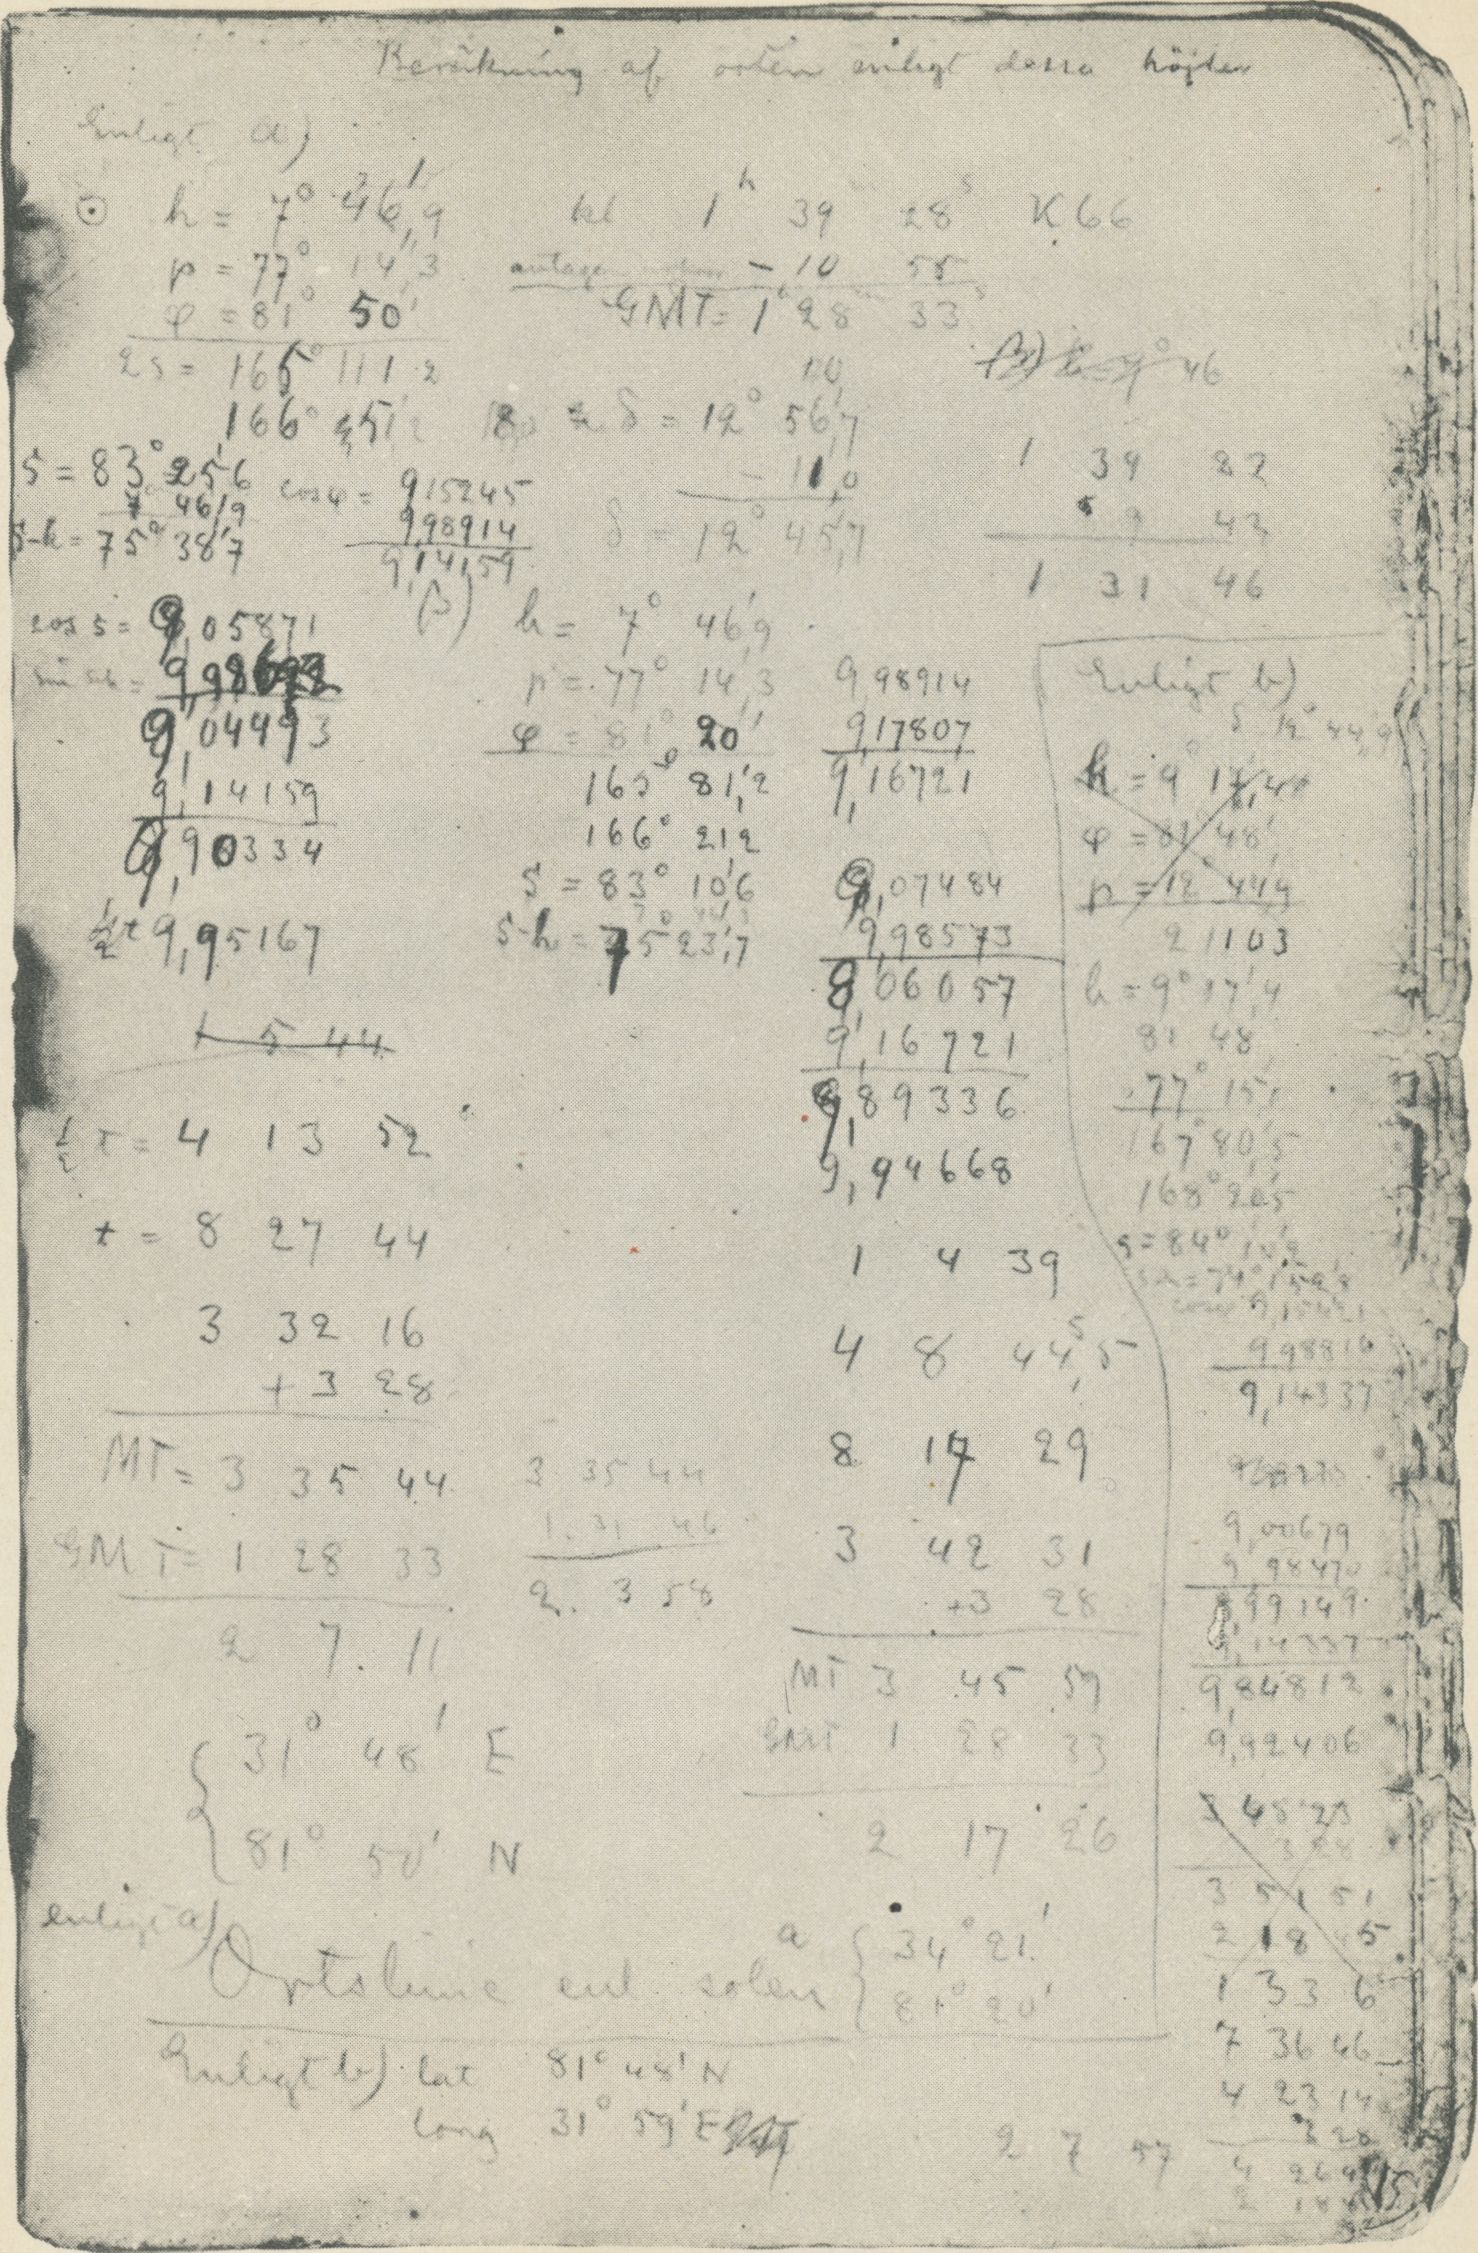 Beräkning af orten enligt dessa höjder
Enligt a)
☉ h = 7° 46',9 kl 1h 39m 28s K66
p = 77° 14',3 antagen - 10 55
φ = 81° 50' GMT = 1h 28m 33s
2s = 165° 111,2
166° 51',2 δ = 12° 56',7
- 11,0
δ = 12° 45',7
46
1 39 22
9 43
1 31 46
s = 83° 25'6
7° 46'9
s-h = 75° 38'7
cos φ = 9,15245
9,98914
9,14159
cos s = 9,05871
9,04493
9,14159
9,90334
½t 9,95167
1 5 44
½ t = 4 13 52
t = 8 27 44
3 32 16
+ 3 28
MT = 3 35 44
GMT = 1 28 33
2 7 11
31° 48' E
81° 50' N
3 35 44
1. 31 46
2. 3 58
β) h = 7° 46',9
p = 77° 14',3
φ = 81° 20'
165° 81',2
166° 21 2
s = 83° 10'6
s-h = 75° 23',7
9 98914
9,17807
9,16721
9,07484
9,98573
9,06057
9,16721
9,89336
9,94668
1 4 39
4 8 44,5s
8 17 29
3 42 31
+3 28
MT 3 45 59
GMT 1 28 33
2 17 26
Enligt b)
δ 12° 44',9
h = 9° 17',4
φ = 81° 48'
p = 12° 44'9
21103
h = 9° 17',4
81 48
77° 15'1
167° 80'5
168° 20'5
s = 84° 10'2
9 98816
9,14337
9,00679
9,98470
8,99149
9,14337
9,84812
9,92406
3 28
3 51 51
2 18 45
1 33 6
7 36 46
4 23 14
3 28
enligt a)
Ortslinie enl solen a { 34° 21'
81° 20'
Enligt b) lat 81° 48' N
long 31° 59' E
2 7 57